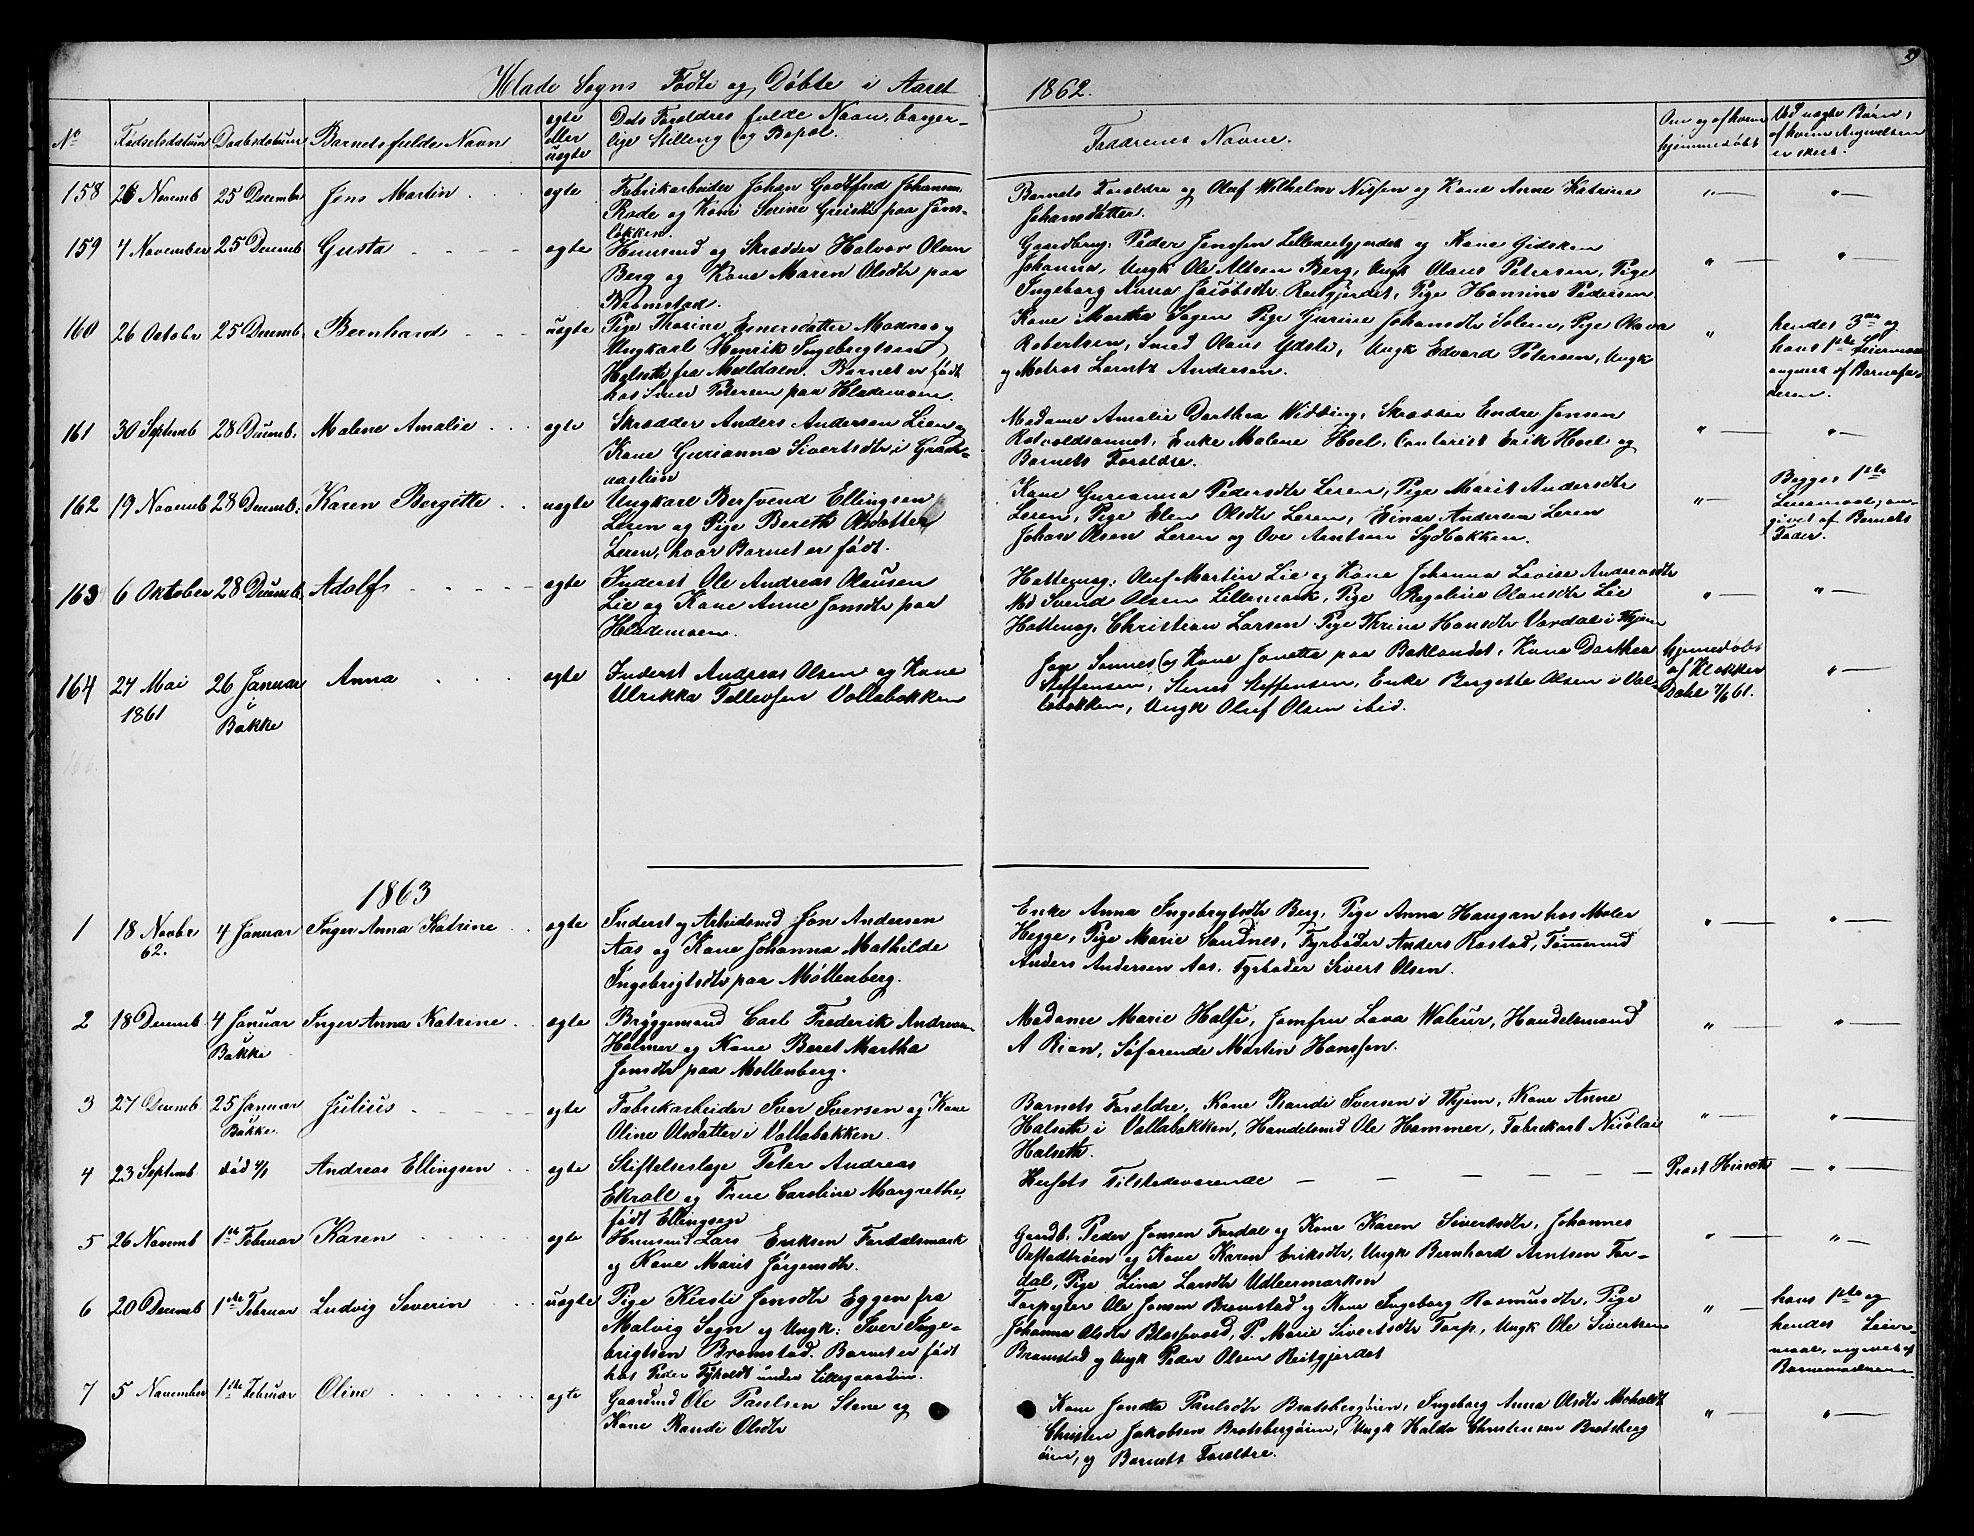 29
Hlade Sogns Fødte og Døbte i Aaret 1862.
No
Fødselsdatum
Daabsdatum
Barnets fulde Navn
ægte
eller
uægte
Dets Forældres fulde Navn, borger-
lige Stilling og Bopæl.
Faddrenes Navne.
Om og af hvem
hjemmedøbt
Ved uægte Børn,
af hvem Angivelsen
er skeet.
158
26 Novemb
25 Decembr
Jens Martin
ægte
Fabrikarbeider Johan Godtfred Johannes
Rode og Kone Serine paa Jøns-
løkken
Barnets Forældre og Oluf Wilhelm Nissen og Kone Anne Katrine
Johansdatter.
" —
" —
159
4 November
25 Decemb
Gusta
ægte
Huusmd og Skrædder Halvor Olsen
Berg og Kone Maren Olsdtr paa
Bromstad.
Gaardbrug. Peder Jenssen Lillereitgjerdet og Kone Gidsken
Johanna, Ungk Ole Altsen Berg, Ungk Olaus Petersen, Pige
Ingeborg Anna Jacobsdtr Reitgjerdet, Pige Hansine Pedersen
" —
" —
160
26 Octobr
25 Decemb.
Bernhard
uægte
Pige Thorine Einersdatter Moxnes og
Ungkarl Henrik Ingebrigtsen
Halseth fra Meldalen. Barnet er født
hos Smed Petersen paa Hlademoen.
Kone Martha Sagen Pige Gurine Johansdtr Solem, Pige Olava
Robertsen, Smed Olaus Ydste, Ungk Edvard Petersen, Ungk
og Matros Lorntz Andersen.
" —
hendes 3die og
hans 1ste Leiermaal
angivet af Barnefa-
deren.
161
30 Septemb
28 Decemb.
Malene Amalie
ægte
Skrædder Anders Andersen Lien og
Kone Gurianna Sivertsdtr i Graa-
kaslien
Madame Amalie Dorthea Widding, Skrædder Endre Jensen
Rotvoldsaunet, Enke Malene Hoel, Contorist Erik Hoel og
Barnets Forældre.
" —
" —
162
19 Novemb
28 Decemb.
Karen Bergitte
uægte
Ungkarl Bersvend Ellingsen
Leren og Pige Bereth Olsdatter
Leren, hvor Barnet er født.
Kone Gureanna Pedersdtr Leren, Pige Marit Andersdtr
Leren, Pige Elen Olsdtr Leren, Einar Andersen Leren
Johan Olsen Leren og Ove Arntsen Sydbakken.
" —
Begges 1ste
Leiermaal, an-
givet af Barnets
Fader.
163
6 Oktober
28 Decemb.
Adolf
ægte
Inderst Ole Andreas Olausen
Lie og Kone Anne Jonsdtr paa
Hlademoen.
Hattemag. Oluf Martin Lie og Kone Johanna Lovise Andreasdtr
Md Svend Olsen Lillemark, Pige Regeline Olausdtr Lie
Hattemag. Christian Larsen Pige Thrine Hansdtr Vardal i Thjem
" —
" —
164
27 Mai
1861
26 Januar
i
Bakke
Anna
ægte
Inderst Andreas Olsen og Kone
Ulrikka Tollevsen Vollabakken
Sannes og Kone Jonetta paa Baklandet, Kone Dorthea
Steffensen, Stenes Steffensen, Enke Bergette Olsen i Vol-
labakken, Ungk Oluf Olsen ibid.
hjemmedøbt
af Klokker
Dahl 7/6 61.
" —
1863
1
18 Novbr
62.
4 Januar
Inger Anna Katrine
ægte
Inderst og Arbeidsmd Jon Andersen
Aas og Kone Johanna Mathilde
Ingebrigtsdtr paa Møllenberg.
Enke Anna Ingebrigtsdtr Berg, Pige Anna Haugan hos Maler
Hegge, Pige Marie Sandnes, Fyrbøder Anders Rostad, Tømmermd
Anders Andersen Aas, Fyrbøder Sivert Olsen.
" —
" —
2
18 Decemb
4 Januar
Bakke
Inger Anna Katrine
ægte
Bryggemand Carl Frederik Andreas
Holmer og Kone Beret Martha
Jonsdtr paa Møllenberg.
Madame Marie Halse, Jomfru Lava Waleur, Handelsmand
A Rian, Søfarende Martin Hanssen.
" —
" —
3
27 Decemb
25 Januar
Bakke
Julius
ægte
Fabrikarbeider Iver Iversen og Kone
Oline Olsdatter i Vollabakken.
Barnets Forældre, Kone Randi Iversen i Thjem, Kone Anne
Halseth i Vollabakken, Handelsmd Ole Hammer, Fabrikarb Nicolai
Halseth.
" —
" —
4
23 Septemb
død 4/1
Andreas Ellingsen
ægte
Stiftelseslæge Peter Andreas
Ekroll og Frue Caroline Margrethe,
født Ellingsen
Husets Tilstedeværende
Præst Hirsch
— " —
5
26 Novemb
1ste Februar
Karen
ægte
Huusmd Lars Eriksen Fordalsmark
og Kone Marit Jørgensdtr.
Gaardb. Peder Jonsen Fordal og Kone Karen Sivertsdtr, Johannes
Opstadtrøen og Kone Karen Eriksdtr, Ungk Bernhard Arntsen For-
dal, Pige Lina Larsdtr Udleermarken
" —
" —
6
20 Decemb
1ste Februar
Ludvig Severin
uægte
Pige Kirsti Jonsdtr Eggen fra
Malvig Sogn og Ungk: Iver Inge-
brigtsen Bromstad. Barnet er født
hos Peder Fyholdt under Lillegaarden.
Forpagter Ole Jonsen Bromstad og Kone Ingeborg Rasmusdtr, Pige
Johanna Olsdtr Blossevold, P. Marie Sivertsdtr Torp, Ungk Ole Sivertsen
Bromstad og Ungk Peder Olsen Reitgjerdet
" —
hans 1ste og
hendes Leier-
maal, angivet af
Barnemoderen
7
5 November
1ste Februar
Oline
ægte
Gaardmd Ole Paulsen Stene og
Kone Randi Olsdtr
Kone Jonetta Paulsdtr Bratsbergøien, Ingeborg Anna Olsdtr Moholdt
Christen Jakobsen Bratsbergøien, Ungk Haldo Christensen Bratsberg
øien, og Barnets Forældre.
" —
" —